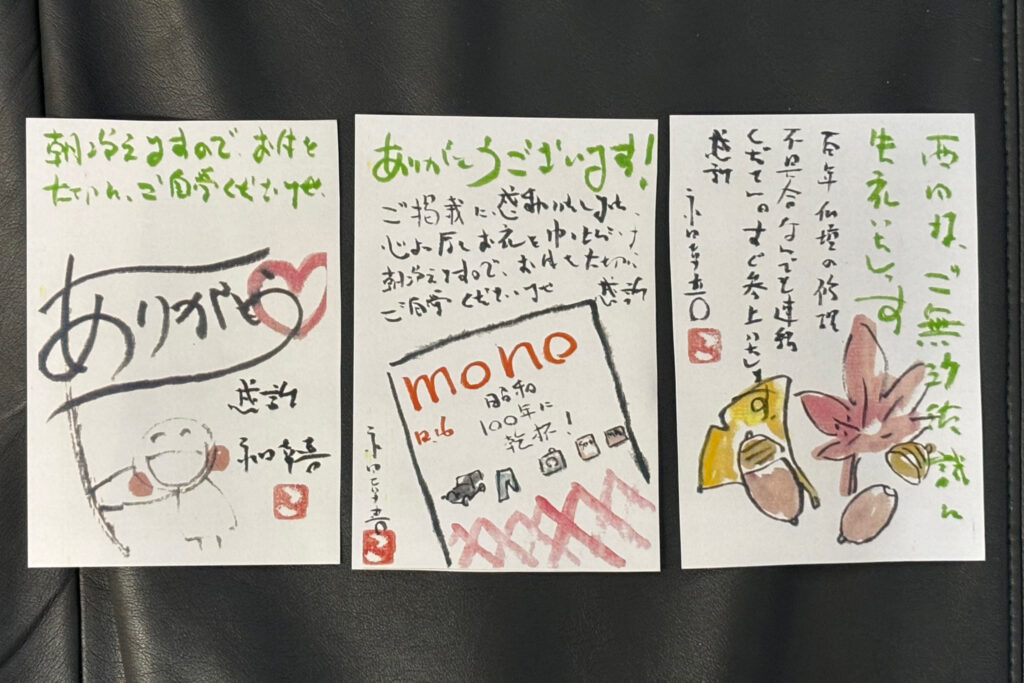 朝冷えますので、お体を
大切に、ご自愛くださいませ。
ありがとう
感謝
和喜
ありがとうございます!
ご掲載に、感謝いたします。
心より厚くお礼を申し上げ
朝冷えますので、お体を大切に、
ご自愛くださいませ
感謝
mono
昭和
100年に
乾杯!
12.16
ご無沙汰
失礼いたします
百年仏壇の修理
不具合なんでも連絡
ください。すぐ参上いたします
感謝